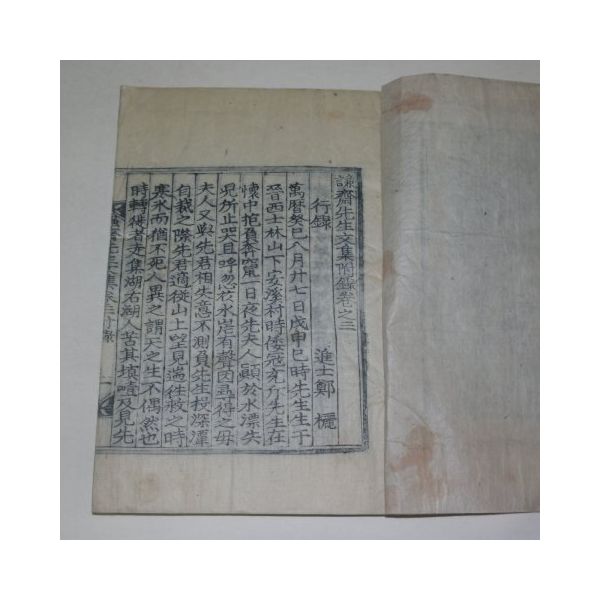 謙齋先生文集附錄卷之三
行錄
進士鄭
萬曆癸巳八月廿七日戊申巳時先生生于
晉西士林山下安溪村時倭寇充斥先生在
懷中抱負奔竄一日夜先夫人顚於水漂失
兒所止哭且呼忽於水岸有聲因尋得之母
夫人又與先君相失意不測負先生投深潭
自裁之際先君適從山上望見過往救之時
寒氷而猶不死人異之謂天之生不偶然也
時轉徙者走集湖右湖人苦其壞噎及見先